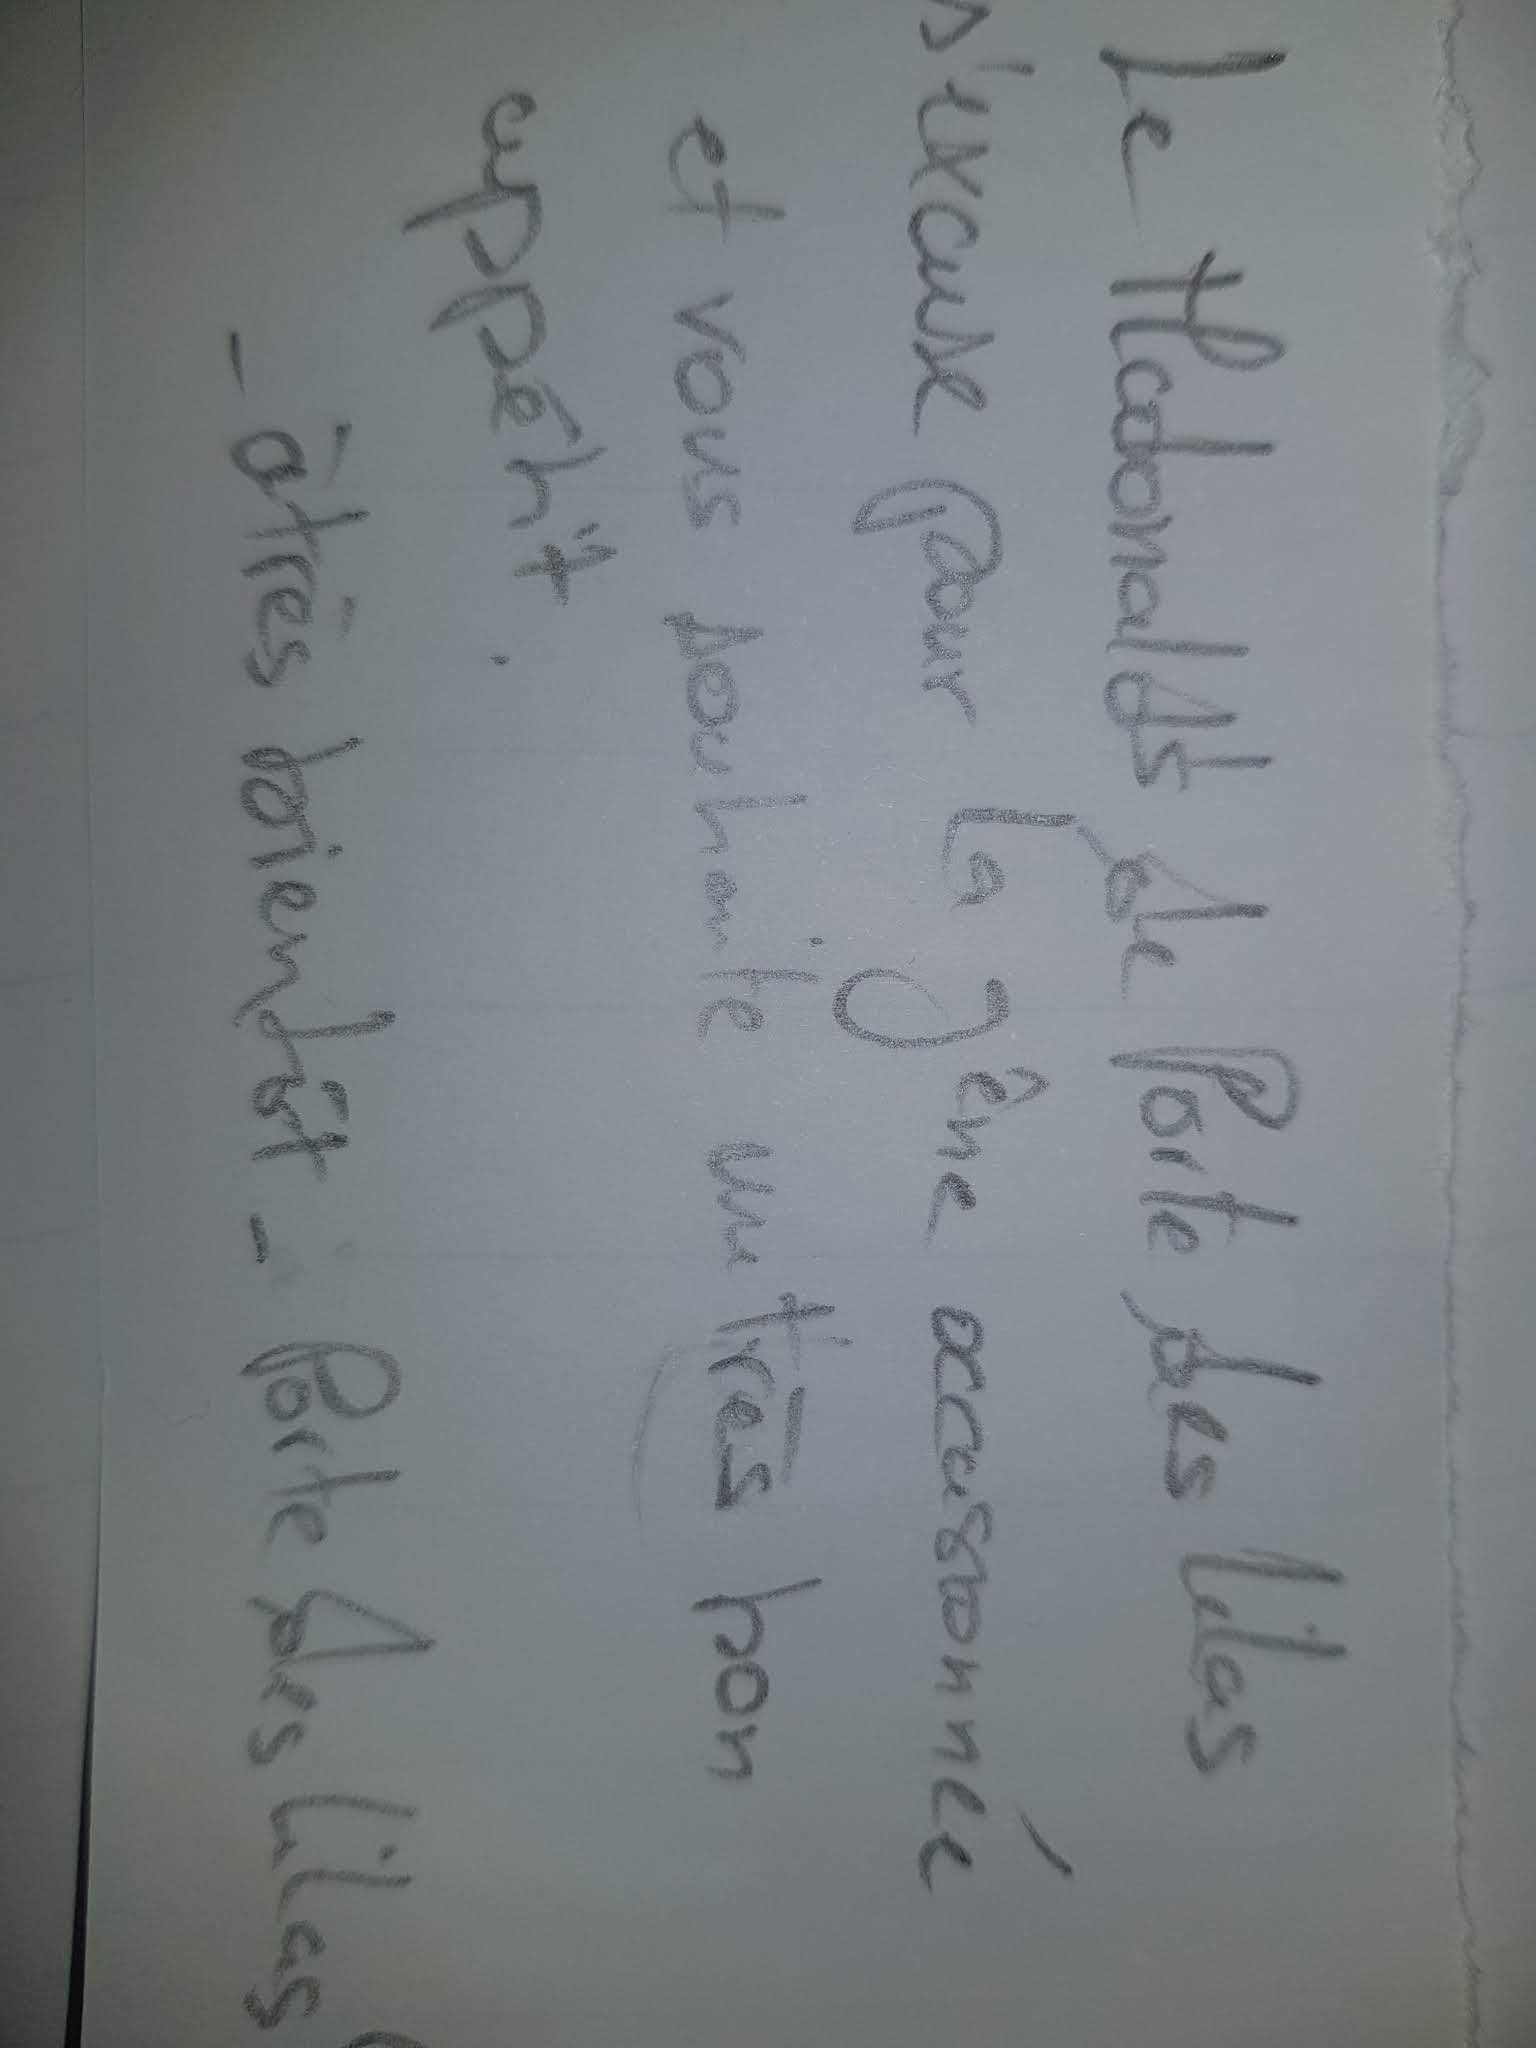 Le Macdonald's de Porte des lilas
s'excuse pour La gêne occassionné
et vous souhaite un très bon
appétit.
- à très bientôt - Porte des lilas